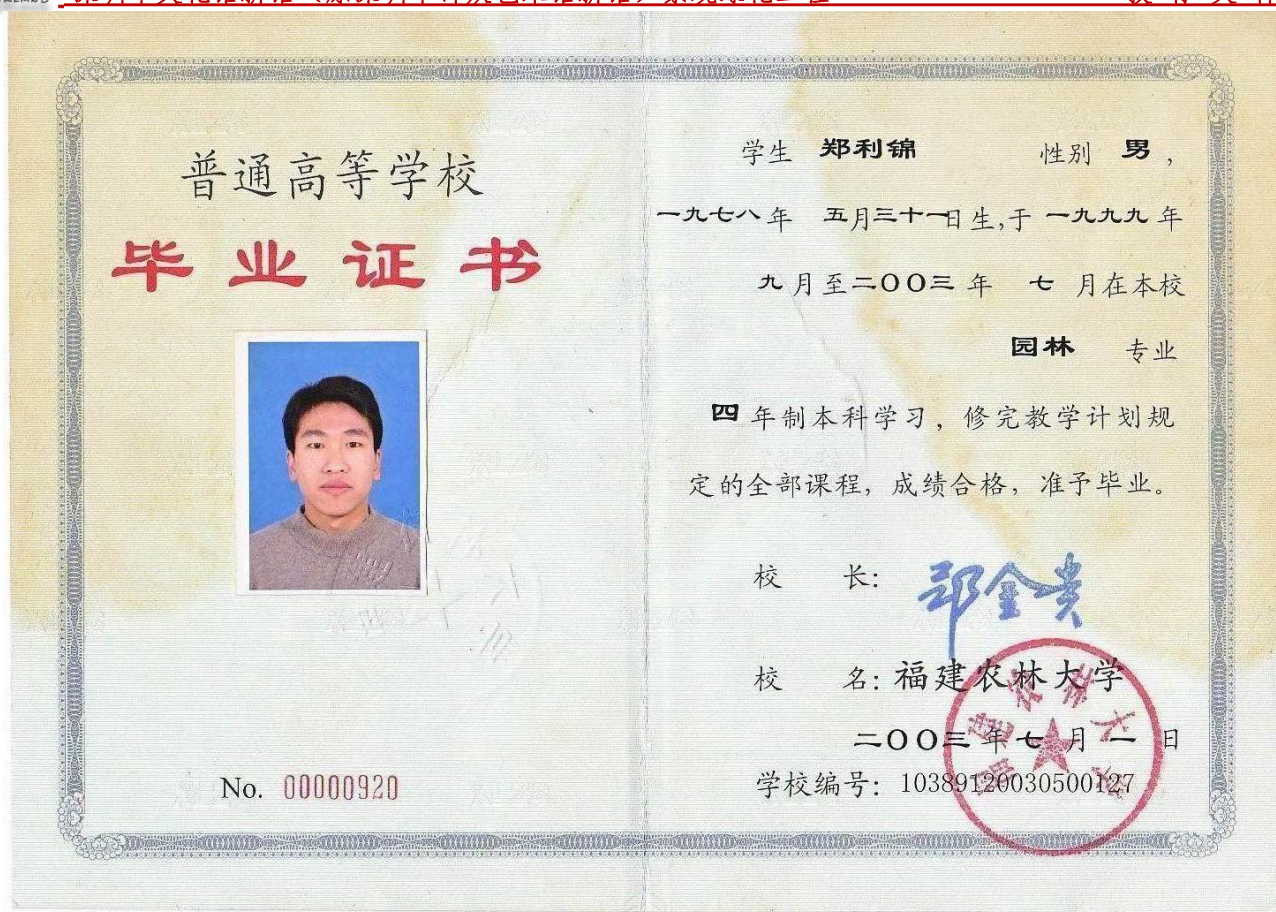 普通高等学校
毕业证书
No. 00000920
学生 郑利锦 性别 男，
一九七八年 五月三十一日生,于 一九九九年
九月至二〇〇三年 七 月在本校
园林 专业
四年制本科学习，修完教学计划规
定的全部课程，成绩合格，准予毕业。
校 长:
校 名: 福建农林大学
二〇〇三年七月一日
学校编号: 10389120030500127
福建农林大学